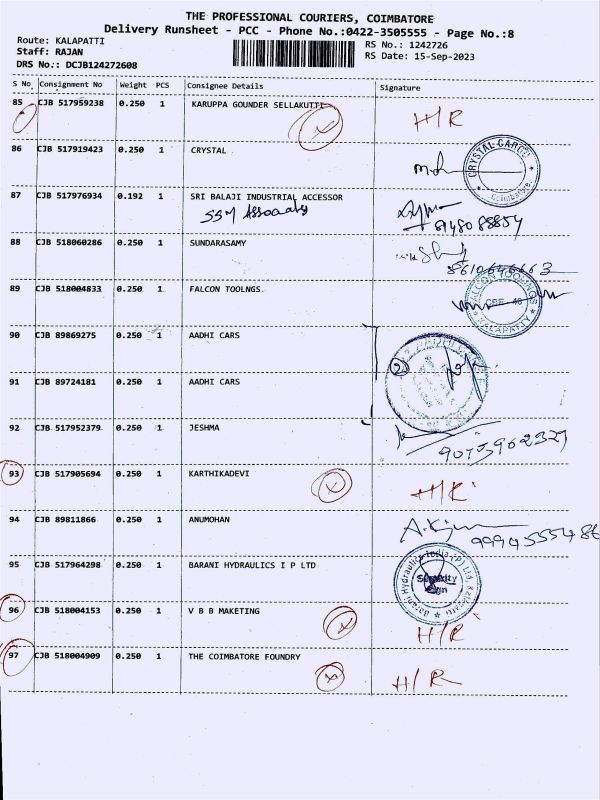 THE PROFESSIONAL COURIERS, COIMBATORE
Delivery Runsheet - PCC - Phone No.:0422-3505555 - Page No.:8
Route: KALAPATTI
Staff: RAJAN
DRS No.: DCJB124272608
RS No.: 1242726
RS Date: 15-Sep-2023
S No Consignment No Weight PCS Consignee Details Signature
85 CJB 517959238 0.250 1 KARUPPA GOUNDER SELLAKUTTI H/R
86 CJB 517919423 0.250 1 CRYSTAL
CRYSTAL CARGO Coimbatore
87 CJB 517976934 0.192 1 SRI BALAJI INDUSTRIAL ACCESSOR
SSM
88 CJB 518060286 0.250 1 SUNDARASAMY
89 CJB 518004833 0.250 1 FALCON TOOLNGS
FALCON TOOLINGS CBE - 48 KALAPATTY
90 CJB 89869275 0.250 1 AADHI CARS
91 CJB 89724181 0.250 1 AADHI CARS
92 CJB 517952379 0.250 1 JESHMA
93 CJB 517905694 0.250 1 KARTHIKADEVI H/R
94 CJB 89811866 0.250 1 ANUMOHAN
95 CJB 517964298 0.250 1 BARANI HYDRAULICS I P LTD
Barani Hydraulics India (P) Ltd, Kalapatti
Security
Sign
96 CJB 518004153 0.250 1 V B B MAKETING H/R
97 CJB 518004909 0.250 1 THE COIMBATORE FOUNDRY H/R